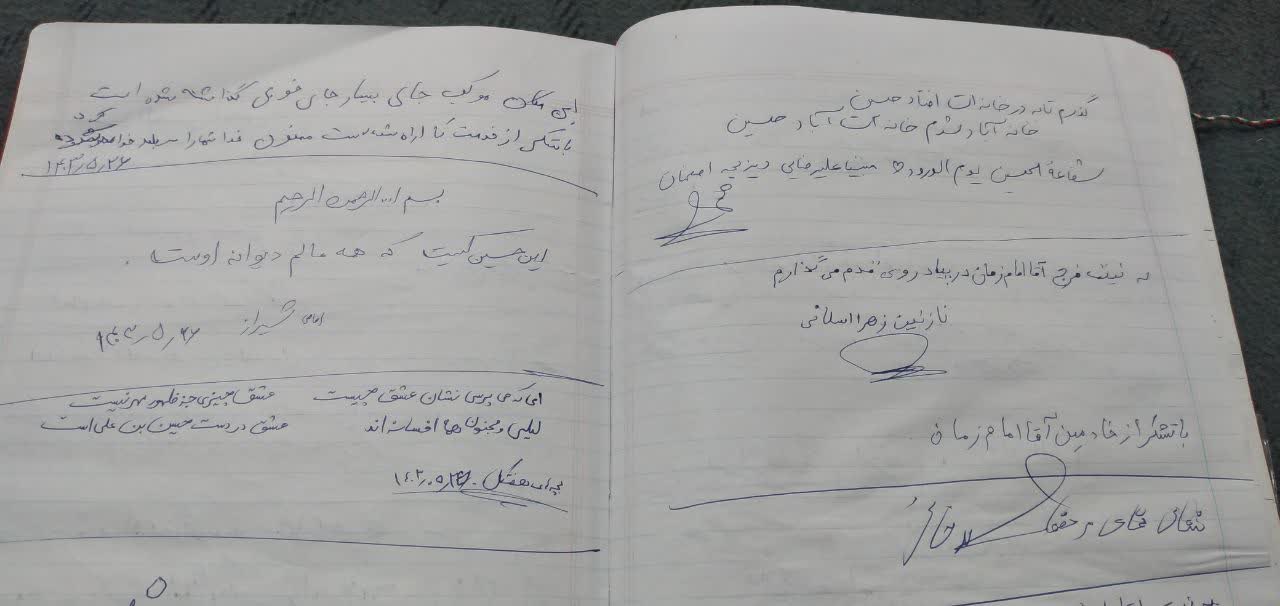 گذرم تا به در خانه ات افتاد حسین
خانه آباد شدم خانه ات آباد حسین
شفاعة الحسین یوم الورود ♡ علیرضایی ویزیچه اصفهان
به نیت فرج آقا امام زمان در پیاده روی قدم می گذارم
نازنین زهرا اسلامی
با تشکر از خادمین آقا امام زمان
این مکان موکب جای بسیار جای خوبی گذاشته شده است
با تشکر از خدمت که ارائه شده است ممنون خدا شما را سربلند
کرد
۱۴۰۳٫۵٫۲۶
بسم الله الرحمن الرحیم
این حسین کیست که همه عالم دیوانه اوست .
شیراز ۱۴۰۳٫۵٫۲۶
ای که می پرسی نشان عشق چیست عشق چیزی جز ظهور مهر نیست
لیلی و مجنون ها افسانه اند عشق در دست حسین بن علی است
بچه های هفتکل ۱۴۰۳٫۰۵٫۲۶